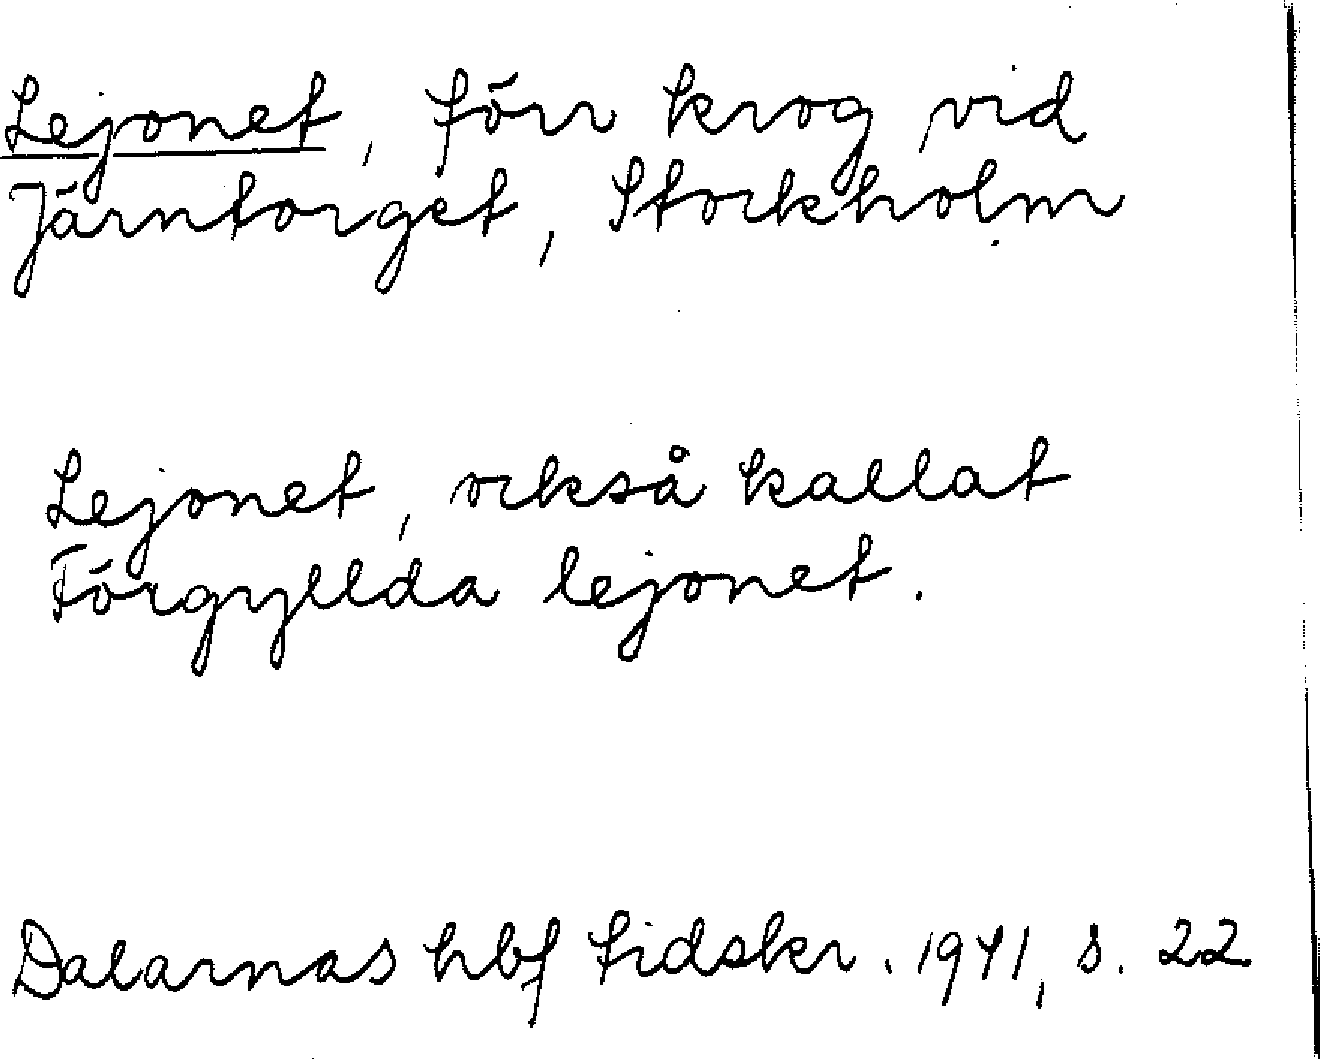 Lejonet, förr krog vid
Järntorget, Stockholm
Lejonet, också kallat
Förgyllda lejonet.
Dalarnas hbf tidskr. 1941, s. 22